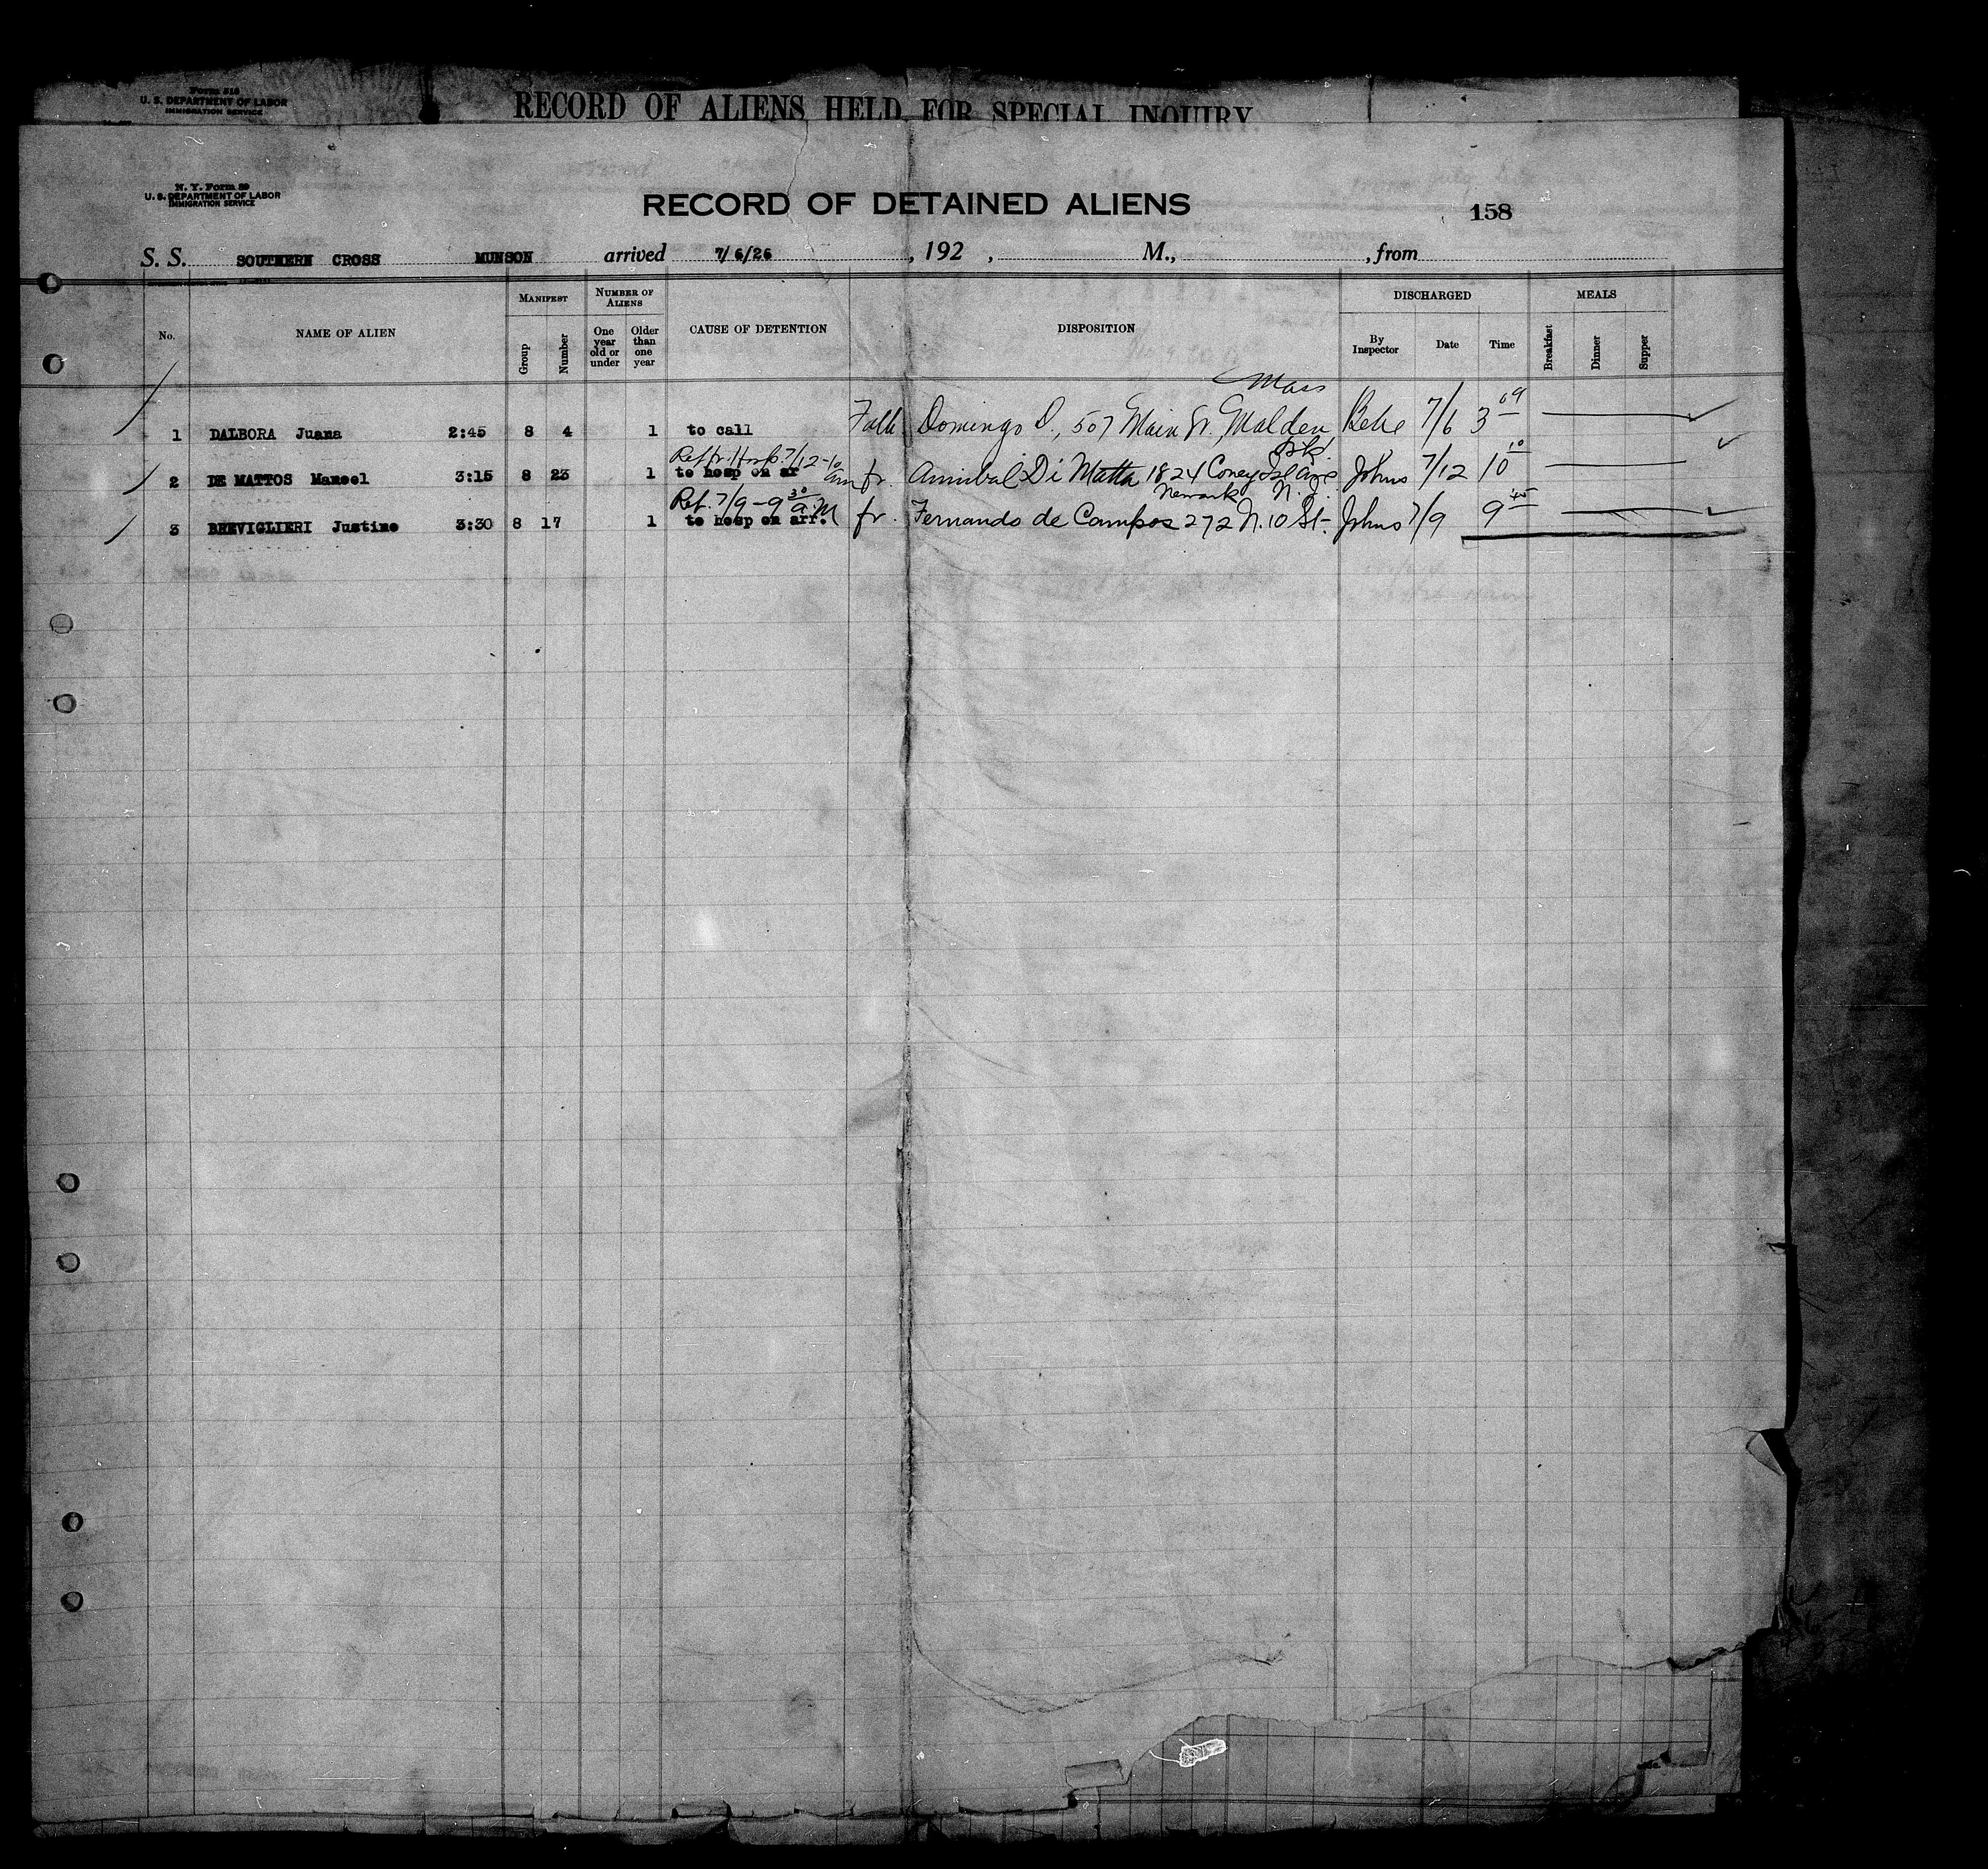 Form 518
U. S. DEPARTMENT OF LABOR
IMMIGRATION SERVICE
RECORD OF ALIENS HELD FOR SPECIAL INQUIRY.
N. Y. Form 39
U. S. DEPARTMENT OF LABOR
IMMIGRATION SERVICE
RECORD OF DETAINED ALIENS
158
S. S. SOUTHERN CROSS MUNSON arrived 7/6/26 , 192 , M., , from
No. NAME OF ALIEN MANIFEST Group Number NUMBER OF ALIENS One year old or under Older than one year CAUSE OF DETENTION DISPOSITION DISCHARGED By Inspector Date Time MEALS Breakfast Dinner Supper
Mass
1 DALBORA Juana 2:45 8 4 1 to call Domingo D., 507 Main St., Malden 7/6 3 09
Ret fr. Hosp. 7/12-10 am Bk.
2 DE MATTOS Manoel 3:15 8 23 1 to hosp on ar fr. Annibal Di Matta 1824 Coney Isl Ave Johns 7/12 10 10
Ret. 7/9-9 30 a M Newark N. J.
3 BREVIGLIERI Justine 3:30 8 17 1 to hosp on arr. fr. Fernando de Campos 272 N. 10 St- Johns 7/9 9 45